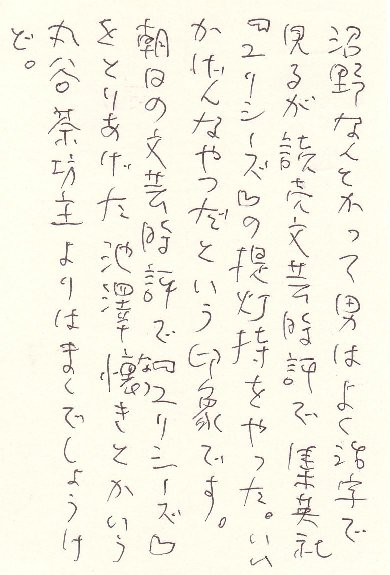 沼野なんとかって男はよく活字で
見るが読売文芸時評で集英社
『ユリシーズ』の提灯持をやった。いい
かげんなやつだという印象です。
朝日の文芸時評で『ユリシーズ』
をとりあげた池澤懐きとかいう
丸谷茶坊主よりはまくでしょうけ
ど。